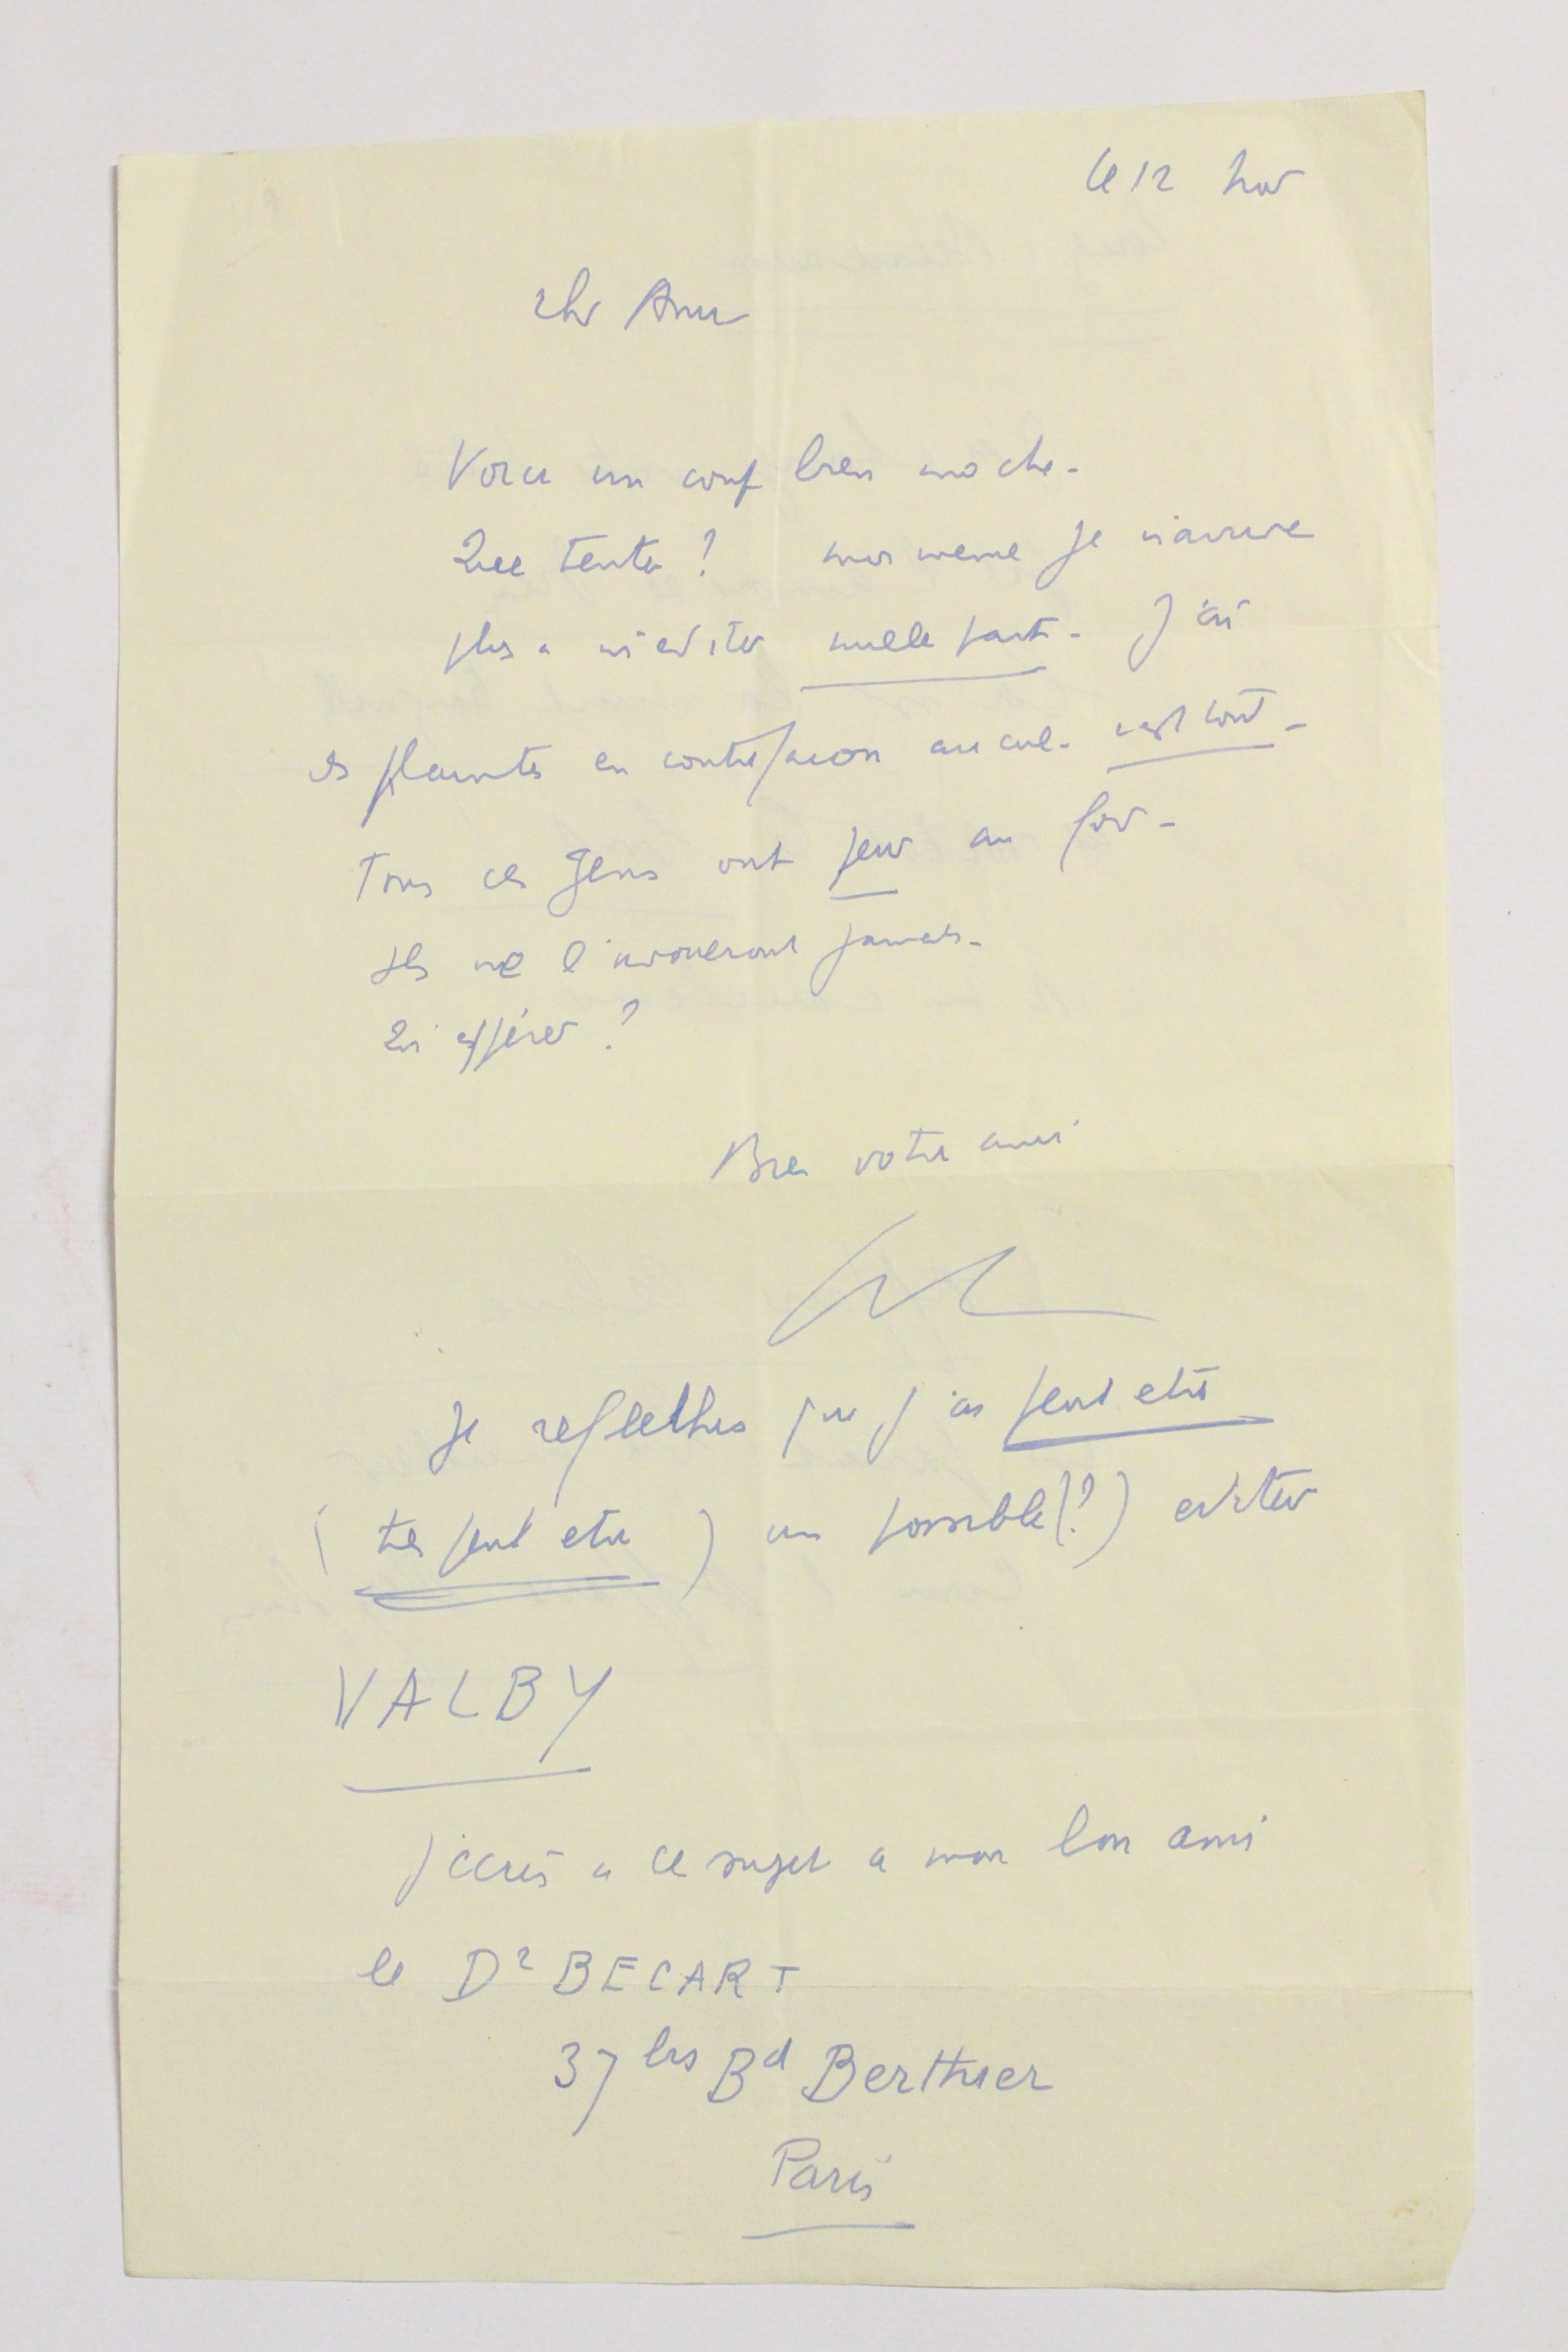 le 12 Nov
cher Ami
Voici un coup bien moche.
Que tenter ? moi meme je n'arrive
plus a m'editer nulle part. J'ai
des plaintes en contrefacon au cul. c'est tout.
Tous ces gens ont peur au fond.
Ils ne l'avoueront jamais.
Qui espérer ?
Bien votre ami
Je reflechis que j'ai peut etre
(tres peut etre) un possible (?) editeur
VALBY
J'ecris a ce sujet a mon bon ami
le Dr BECART
37 bis Bd Berthier
Paris